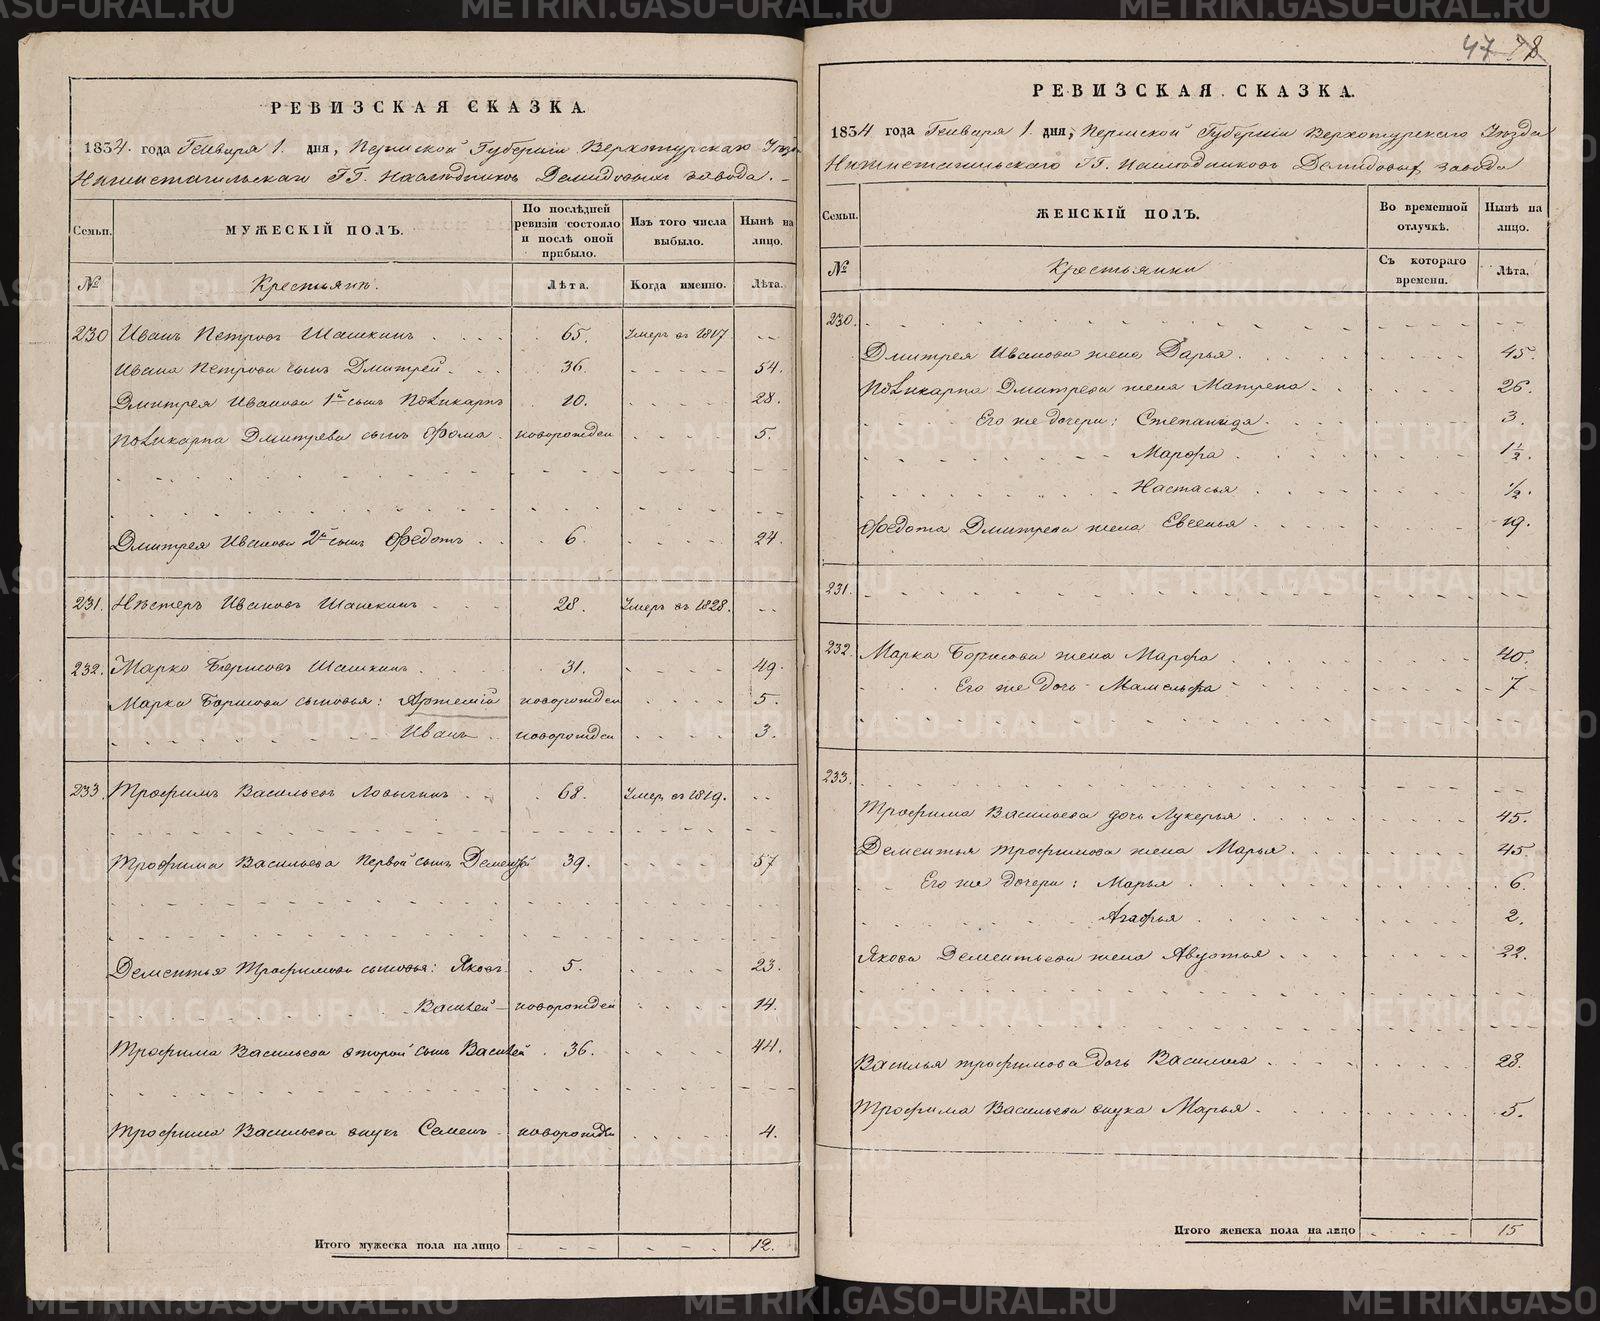 47 78
РЕВИЗСКАЯ СКАЗКА.
1834. года Генваря 1. дня, Пермской Губерніи Верхотурскаго Уезда
Нижнетагильскаго ГГ. Наследниковъ Демидовыхъ завода.
Семьи. МУЖЕСКІЙ ПОЛЪ. По послѣдней ревизіи состояло и послѣ оной прибыло. Изъ того числа выбыло. Нынѣ на лицо.
№ Крестьянъ. Лѣта. Когда именно. Лѣта.
230 Иванъ Петровъ Шашкинъ 65. Умеръ въ 1817
Ивана Петрова сынъ Дмитрей. 36. 54.
Дмитрея Иванова 1й сынъ Поликарпъ 10. 28.
Поликарпа Дмитрева сынъ Фома. новорожден 5.
Дмитрея Иванова 2й сынъ Федотъ 6. 24.
231. Нѣстеръ Ивановъ Шашкинъ 28. Умеръ въ 1828.
232. Марко Борисовъ Шашкинъ 31. 49.
Марка Борисова сыновья: Артемій новорожден 5.
Иванъ новорожден 3.
233. Трофимъ Васильевъ 68. Умер. въ 1819.
Трофима Васильева первой сынъ Дементей 39. 57
Дементья Трофимова сыновья: Яковъ 5. 23.
Василей новорожден 14.
Трофима Васильева второй сынъ Василей 36. 44.
Трофима Васильева внукъ Семенъ новорожден 4.
Итого мужеска пола на лицо 12.
РЕВИЗСКАЯ СКАЗКА.
1834 года Генваря 1. дня, Пермской Губерніи Верхотурскаго Уезда
Нижнетагильскаго ГГ. Наследниковъ Демидовыхъ завода
Семьи. ЖЕНСКІЙ ПОЛЪ. Во временной отлучкѣ. Нынѣ на лицо.
№ Крестьянки Съ котораго времени. Лѣта.
230.
Дмитрея Иванова жена Дарья. 45.
Поликарпа Дмитрева жена Матрена. 26.
Его же дочери: Степанида. 3.
Марфа 1 1/2.
Настасья 1/2.
Федота Дмитрева жена Евгенья. 19.
231.
232. Марка Борисова жена Марфа 40.
Его же дочь Мамельфа 7
233.
Трофима Васильева дочь Лукерья 45.
Дементья Трофимова жена Марья. 45.
Его же дочери: Марья 6.
Агафья 2.
Якова Дементьева жена Авдотья 22.
Василья Трофимова дочь Василиса 28.
Трофима Васильева внука Марья. 5.
Итого женска пола на лицо 15
METRIKI.GASO-URAL.RU